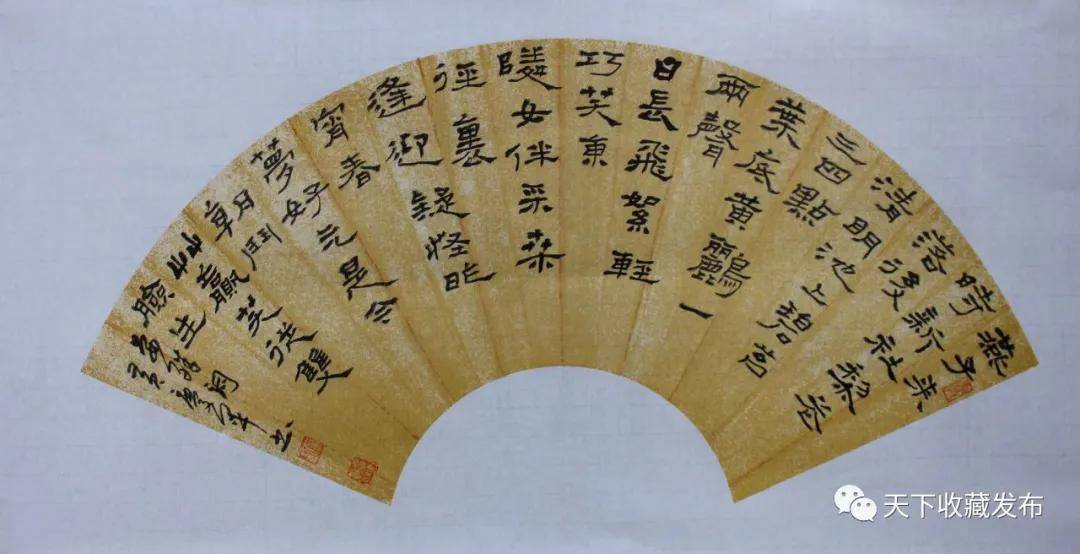 燕子来
時新社梨花
落後
清明池上碧苔
三四點
葉底黃鸝一
兩聲
日長飛絮輕
巧笑東
隣女伴采桑
徑裏
逢迎疑怪昨
宵春
夢好元是今
朝鬥
艸贏笑從雙
臉生
书
天下收藏发布